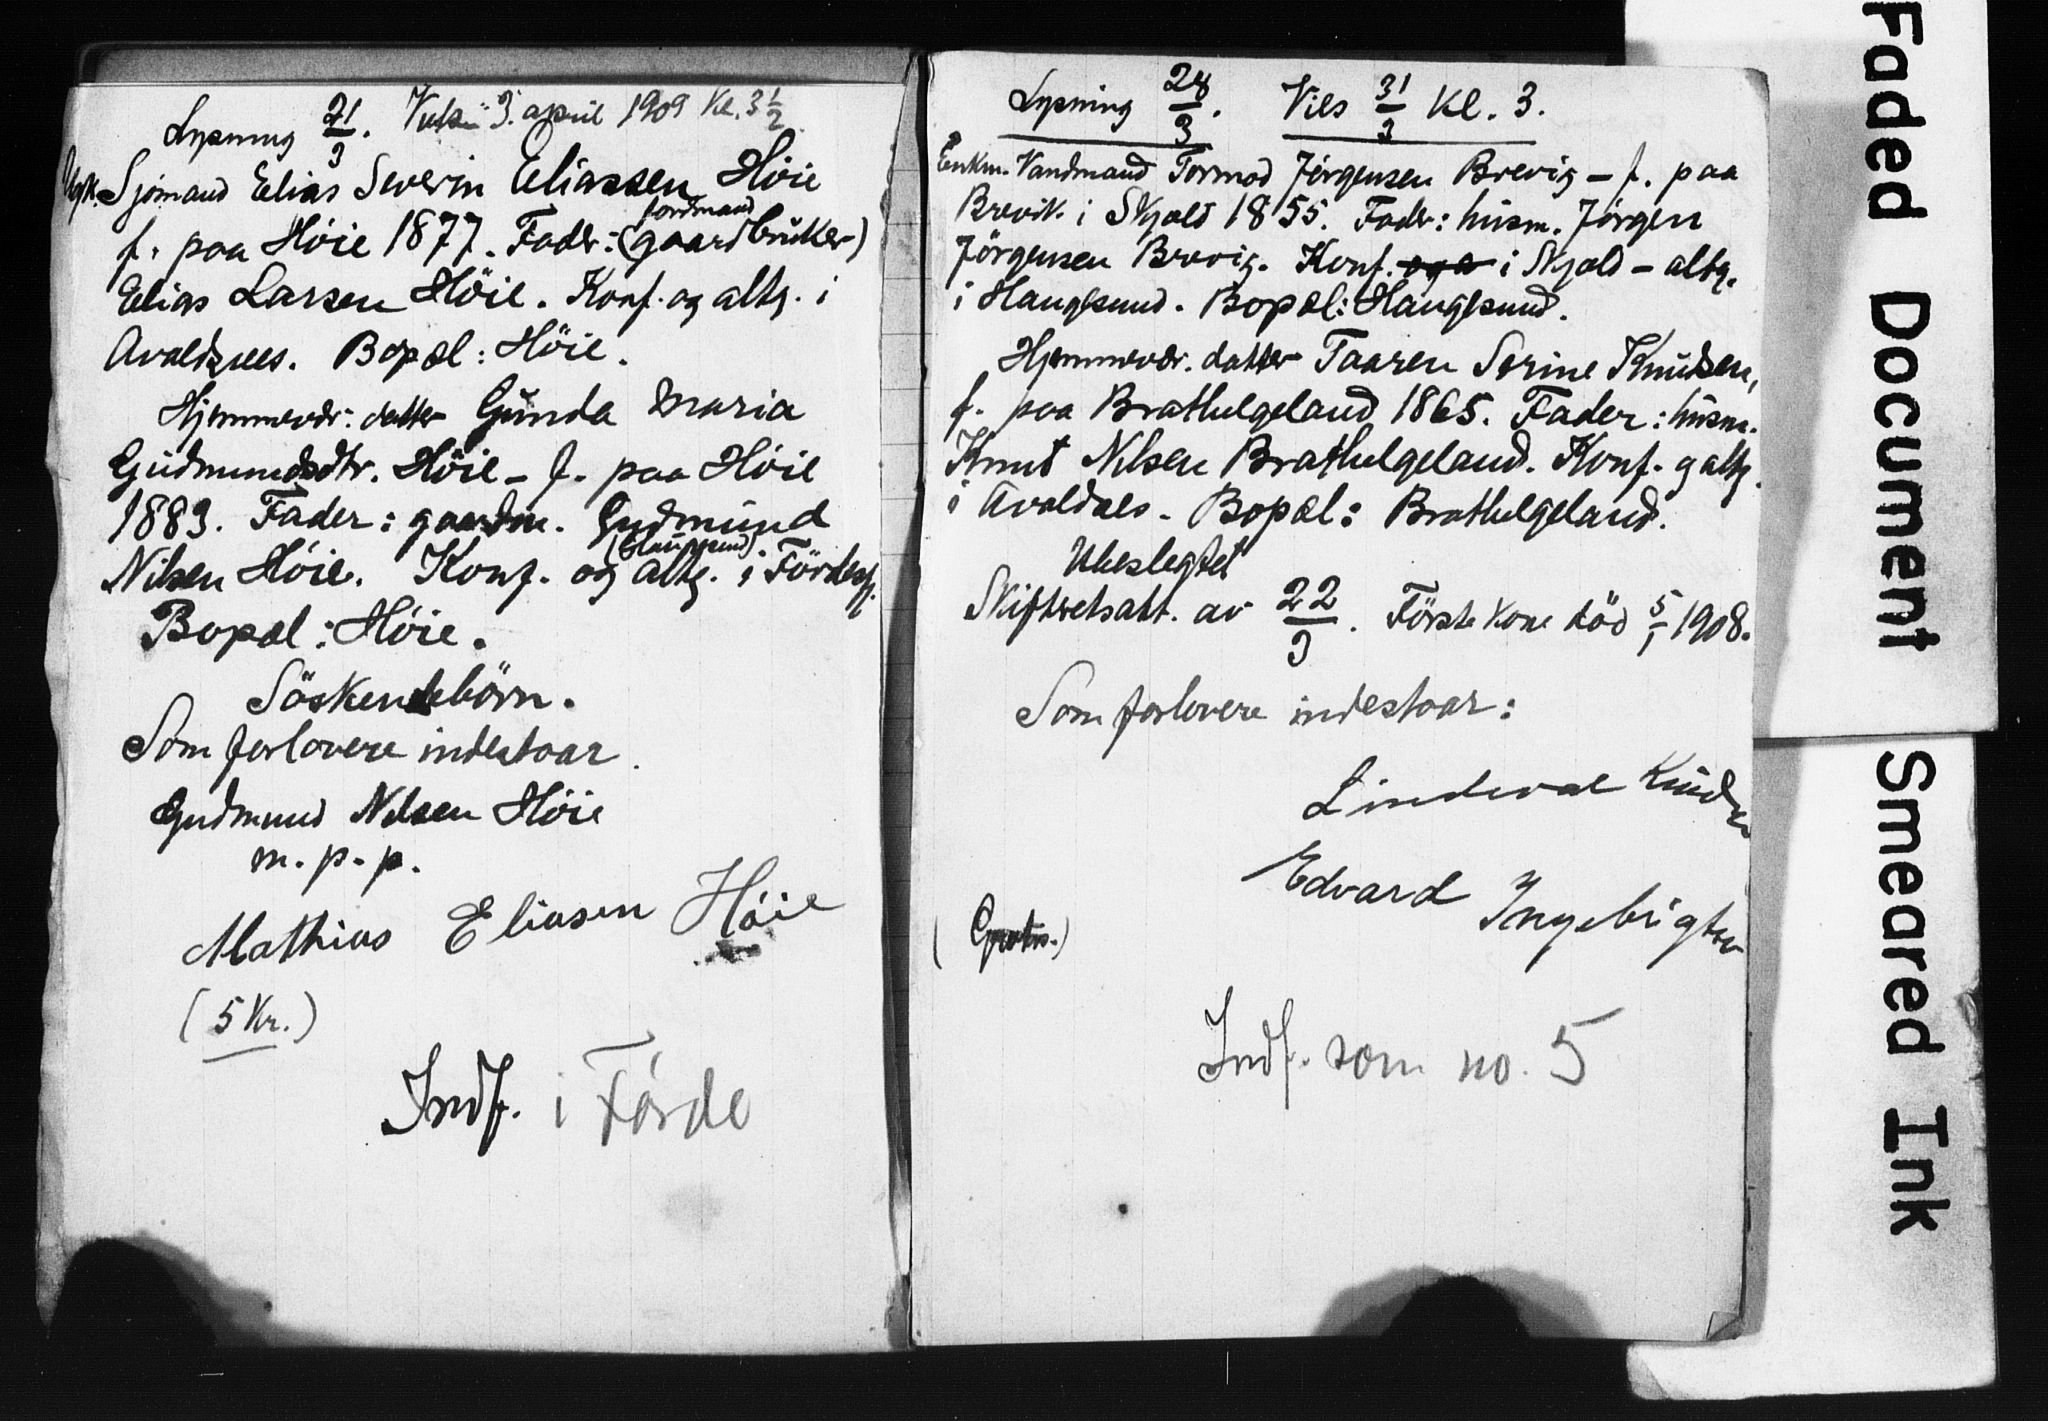 Lysning 21/3. Vies 3. april 1909 Kl. 3 1/2.
Ungk. Sjömand Elias Severin Eliassen Höie
f. paa Höie 1877. Fader: (gaardbruker)
jordmand
Elias Larsen Höie. Konf. og altg. i
Avaldsnes. Bopæl: Höie.
Hjemmevær. datter Gunda Maria
Gudmundsdtr. Höie – f. paa Höie
1883. Fader: gaardm. Gudmund
Nilsen Höie. Konf. og altg. i Förde
(Haugesund)
Bopæl: Höie.
Söskendebörn.
Som forlovere indestaar
Gudmund Nilsen Höie
m. p. p.
Mathias Eliasen Höie
(5 Kr.)
Indf. i Förde
Lysning 28/3. Vies 31/3 Kl. 3.
Enkm. Vandmand Tormod Jörgensen Brevig – f. paa
Brevik i Skjold 1855. Fader: husm. Jörgen
Jörgensen Brevig. Konf. og a i Skjold – altg.
i Haugesund. Bopæl: Haugesund.
Hjemmevær. datter Taaren Serine Knudsen,
f. paa Brathelgeland 1865. Fader: husm.
Knut Nilsen Brathelgeland. Konf. g altg.
i Avaldsnes. Bopæl: Brathelgeland.
Ubeslegtet
Skifteretsatt. av 22/3. Förste Kone död 5/1 1908.
Som forlovere indestaar:
Lindeval Knudsen
Edvard Ingebrigtsen
(Gratis.)
Indf. som no. 5
Faded Document
Smeared Ink